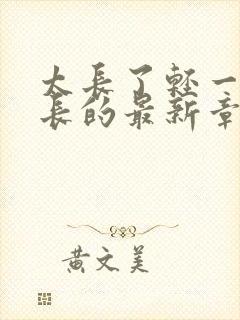 太長了輕一
長的最新章
黃文美